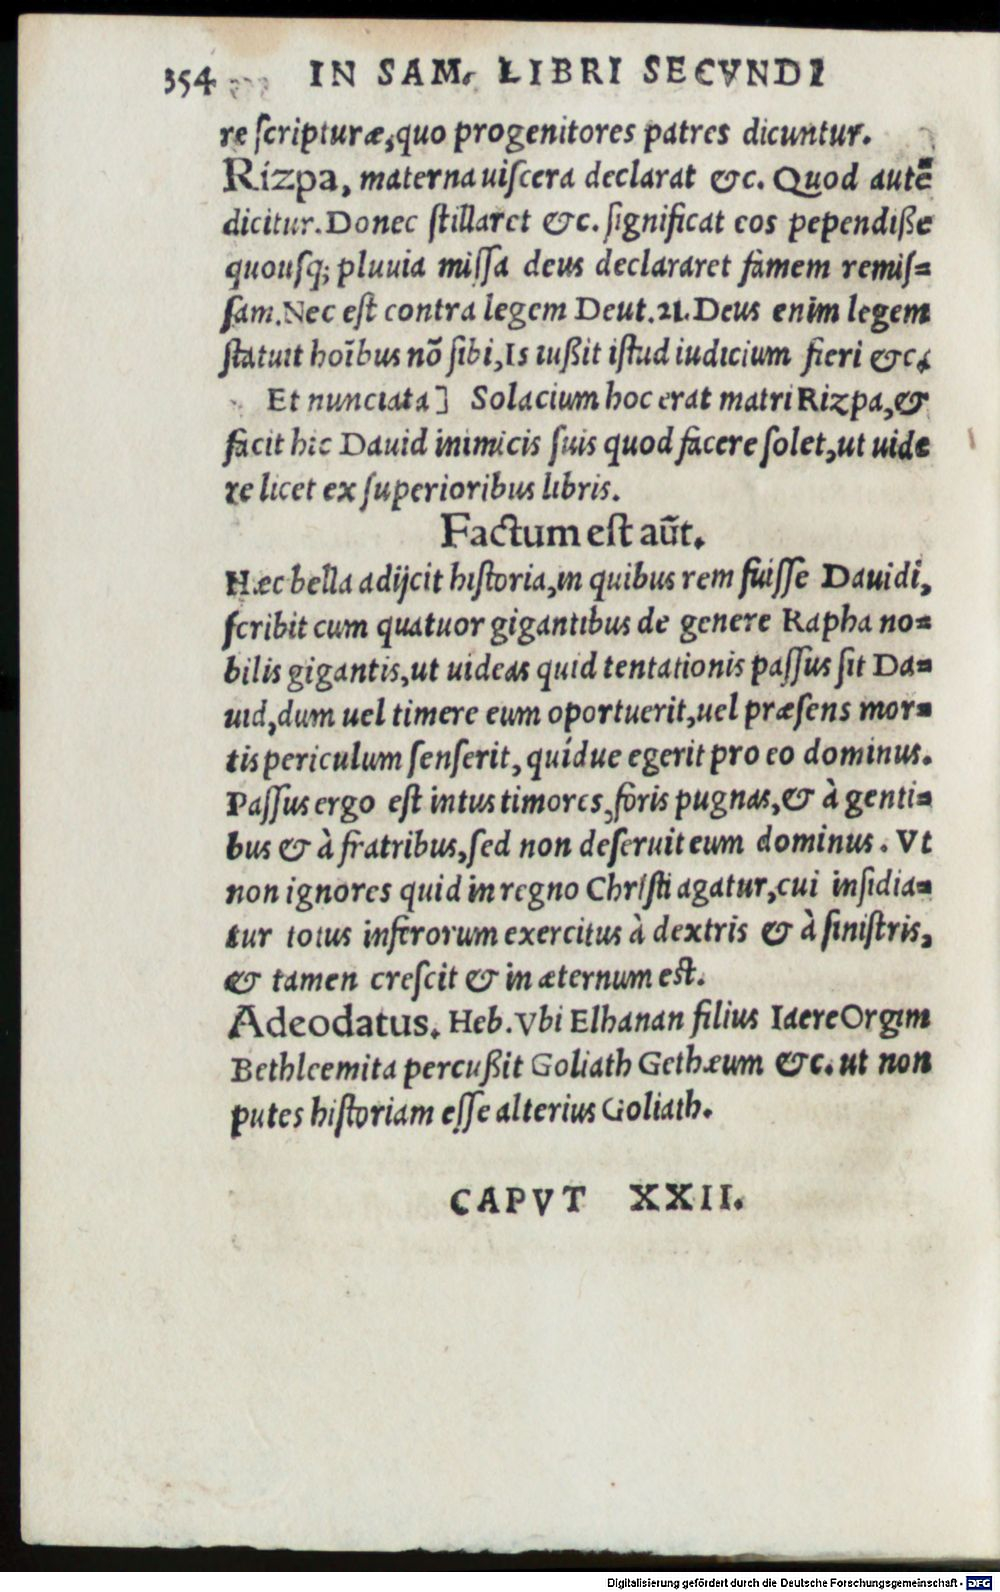 354 IN SAM. LIBRI SECVNDI
re scripturæ, quo progenitores patres dicuntur.
Rizpa, materna uiscera declarat &c. Quod autē
dicitur. Donec stillaret &c. significat eos pependiße
quousq; pluuia missa deus declararet famem remis=
sam. Nec est contra legem Deut. 21. Deus enim legem
statuit hoībus nō sibi, Is iußit istud iudicium fieri &c.
Et nunciata] Solacium hoc erat matri Rizpa, &
facit hic Dauid inimicis suis quod facere solet, ut uide
re licet ex superioribus libris.
Factum est aūt.
Hæc bella adijcit historia, in quibus rem fuisse Dauidi,
scribit cum quatuor gigantibus de genere Rapha no=
bilis gigantis, ut uideas quid tentationis passus sit Da=
uid, dum uel timere eum oportuerit, uel præsens mor=
tis periculum senserit, quídue egerit pro eo dominus.
Passus ergo est intus timores, foris pugnas, & à genti=
bus & à fratribus, sed non deseruit eum dominus. Vt
non ignores quid in regno Christi agatur, cui insidia=
tur totus inferorum exercitus à dextris & à sinistris,
& tamen crescit & in æternum est.
Adeodatus. Heb. Vbi Elhanan filius Iaere Orgim
Bethleemita percußit Goliath Gethæum &c. ut non
putes historiam esse alterius Goliath.
CAPVT XXII.
Digitalisierung gefördert durch die Deutsche Forschungsgemeinschaft - DFG